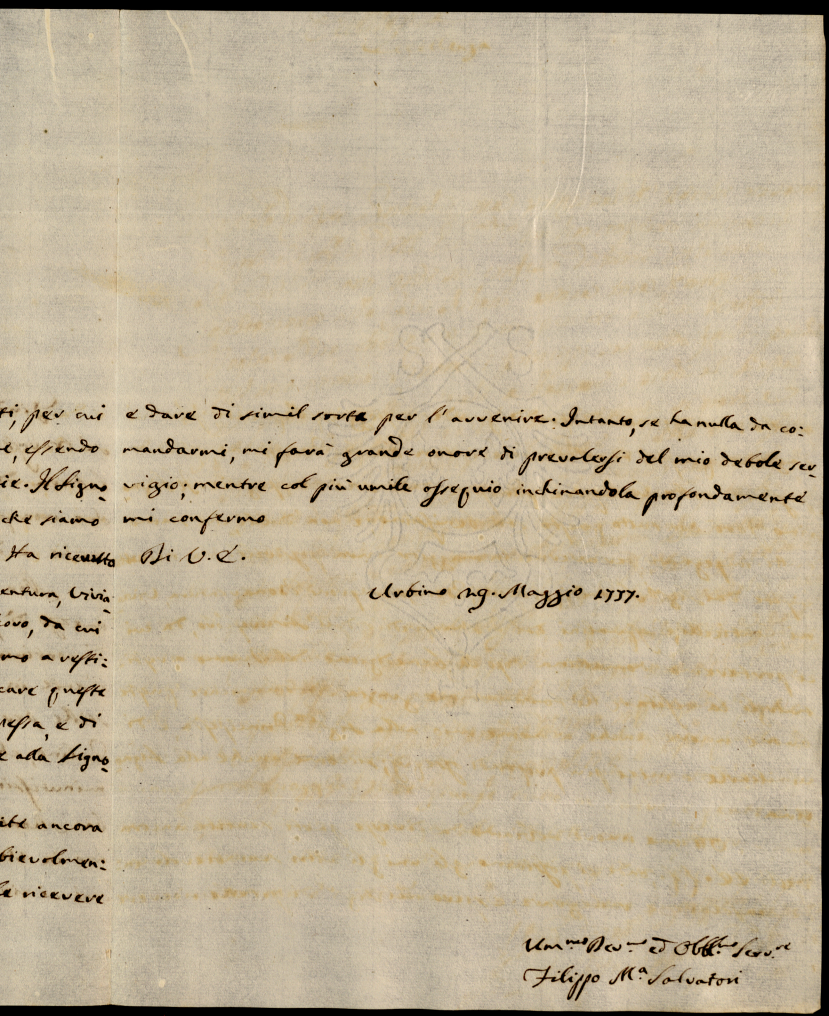 ti, per cui
e, essendo
rie. Il Signo-
che siamo
Ha ricevuto
entura, Vivia-
ovo, da cui
mo a vesti:
care queste
essa, e di
e alla Signo-
ite ancora
bievolmen:
le ricevere
e dare di simil sorte per l'avvenire. Intanto, se ha nulla da co:
mandarmi, mi farà grande onore di prevalersi del mio debole ser-
vigio; mentre col più umile ossequio inchinandola profondamente
mi confermo
Di V. E.
Urbino 29. Maggio 1757.
Um.mo Dev.mo ed Obbl.mo Serv.re
Filippo M.a Salvatori